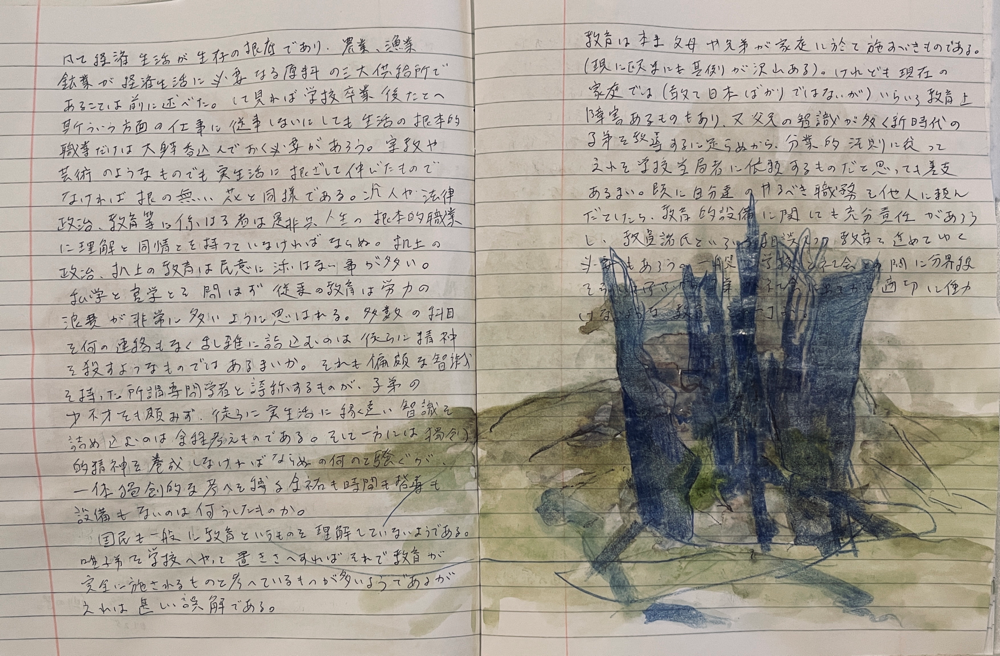 凡て経済生活が生存の根底であり、農業、漁業
鉱業が経済生活に必要なる原料の三大供給所で
あることは前に述べた。して見れば学校卒業後たとへ
斯ういう方面の仕事に従事しないにしても生活の根本的
職業だけは大体呑込んでおく必要があろう。宗教や
芸術のようなものでも実生活に根ざして伸びたもので
なければ根の無い花と同様である。況んや法律
政治、教育等に係はる者は是非共人生の根本的職業
に理解と同情とを持っていなければならぬ。机上の
政治、机上の教育は民意に添はない事が多い。
私学と官学とを問はず従来の教育は労力の
浪費が非常に多いように思はれる。多数の科目
を何の連絡もなく乱雑に詰込むのは徒らに精神
を殺すようなものではあるまいか。それも偏頗な智識
を持った所謂専門学者と誇称するものが、子弟の
少不才をも顧みず、徒らに実生活に縁遠い智識を
詰め込むのは考えものである。そして一方には独創
的精神を養成しなければならぬの何のと騒ぐが、
一体独創的な考へを練る余裕も時間も指導も
設備もないのは何うしたものか。
国民も一般に教育というものを理解していないようである。
唯子弟を学校へやって置きさへすればそれで教育が
完全に施されるものと考へているものが多いようであるが
之れは甚しい誤解である。
教育は本来父母や兄弟が家庭に於て施すべきものである。
(現に欧米にも其例が沢山ある)。けれども現在の
家庭では(敢て日本ばかりではないが)いろいろ教育上
障害あるものもあり、又父兄の智識が多く新時代の
子弟を教導するに足らぬから、分業的法則に従って
之れを学校当局者に依頼するものだと思っても差支
あるまい。既に自分達のやるべき職務を他人に頼ん
だとしたら、教育的設備に関しても充分責任があろう
し、教員諸氏という相談 教育を進めてゆく
必要もあろう。一般 学校と社会との間に分界線
を 適切に働